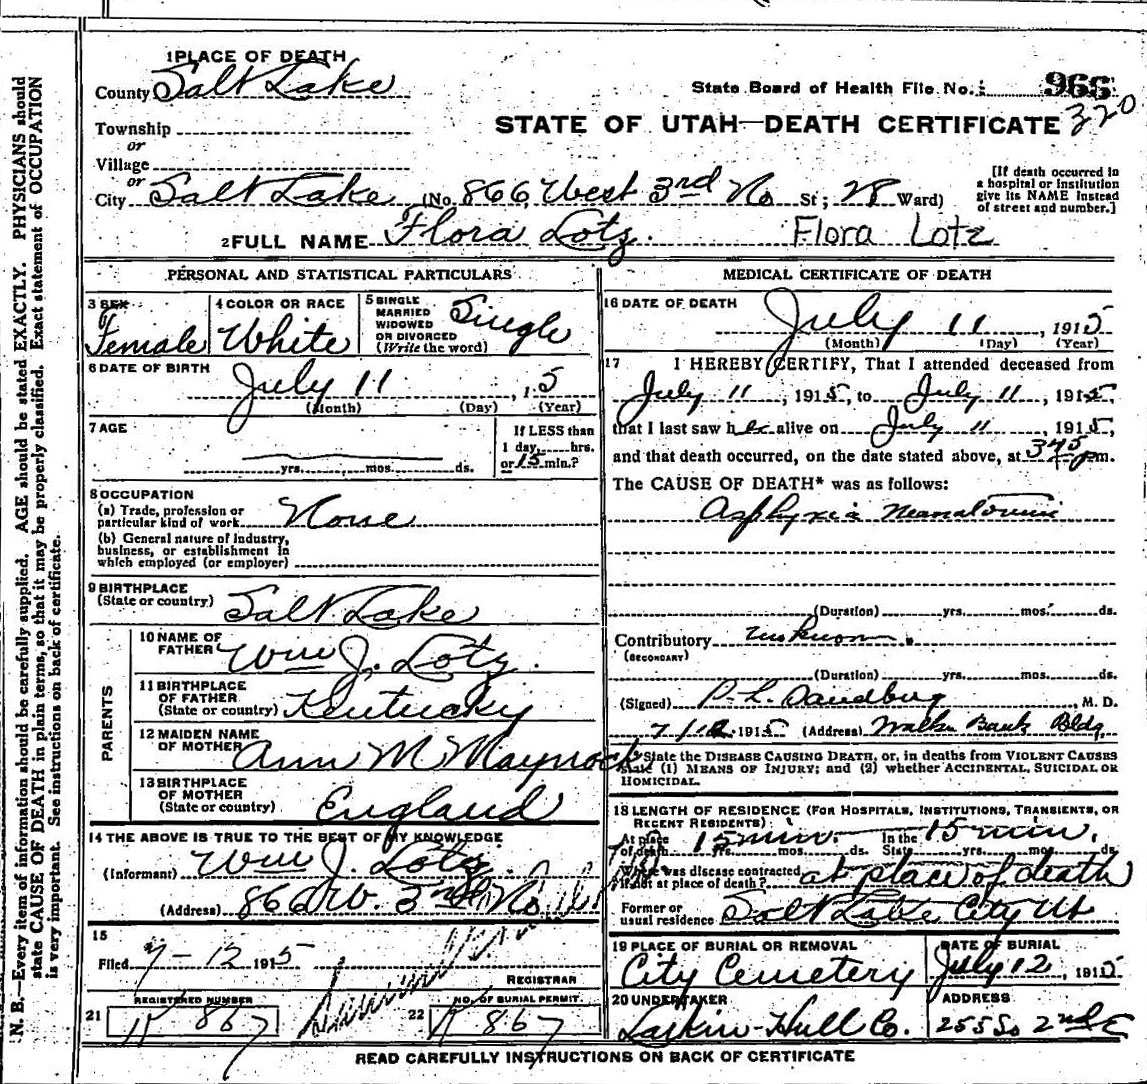 1 PLACE OF DEATH
County Salt Lake
State Board of Health File No. 966
320
STATE OF UTAH—DEATH CERTIFICATE
Township
or
Village
or
City Salt Lake (No. 866 West 3rd No St; 28 Ward)
[If death occurred in
a hospital or institution
give its NAME instead
of street and number.]
2 FULL NAME Flora Lotz. Flora Lotz
PERSONAL AND STATISTICAL PARTICULARS
3 SEX Female
4 COLOR OR RACE White
5 SINGLE
MARRIED
WIDOWED
OR DIVORCED
(Write the word)
Single
6 DATE OF BIRTH
July 11, 15
(Month) (Day) (Year)
7 AGE
yrs. mos. ds.
If LESS than
1 day, hrs.
or 15 min.?
8 OCCUPATION
(a) Trade, profession or
particular kind of work None
(b) General nature of industry,
business, or establishment in
which employed (or employer)
9 BIRTHPLACE
(State or country) Salt Lake
PARENTS
10 NAME OF
FATHER Wm J. Lotz.
11 BIRTHPLACE
OF FATHER
(State or country) Kentucky
12 MAIDEN NAME
OF MOTHER Ann M Maynock
13 BIRTHPLACE
OF MOTHER
(State or country) England
14 THE ABOVE IS TRUE TO THE BEST OF MY KNOWLEDGE
(Informant) Wm J. Lotz
(Address) 866 W. 3rd No
15
Filed 7-12 1915
REGISTRAR
21 REGISTERED NUMBER
R 867
22 NO. OF BURIAL PERMIT
R 867
MEDICAL CERTIFICATE OF DEATH
16 DATE OF DEATH
July 11, 1915
(Month) (Day) (Year)
17 I HEREBY CERTIFY, That I attended deceased from
July 11, 1915, to July 11, 1915,
that I last saw her alive on July 11, 1915,
and that death occurred, on the date stated above, at 345 pm.
The CAUSE OF DEATH* was as follows:
Asphyxia
(Duration) yrs. mos. ds.
Contributory unknown.
(SECONDARY)
(Duration) yrs. mos. ds.
(Signed) P. L. Sandberg, M. D.
7/12 1915 (Address) Walker Bank Bldg
*State the DISEASE CAUSING DEATH, or, in deaths from VIOLENT CAUSES
state (1) MEANS OF INJURY; and (2) whether ACCIDENTAL, SUICIDAL OR
HOMICIDAL.
18 LENGTH OF RESIDENCE (FOR HOSPITALS, INSTITUTIONS, TRANSIENTS, OR
RECENT RESIDENTS)
At place
of death 15 min. yrs. mos. ds. In the
State 15 min. yrs. mos. ds.
Where was disease contracted
if not at place of death? at place of death
Former or
usual residence Salt Lake City Ut
19 PLACE OF BURIAL OR REMOVAL
City Cemetery
DATE OF BURIAL
July 12, 1915
20 UNDERTAKER
Larkin-Hull Co.
ADDRESS
255 So 2nd E
READ CAREFULLY INSTRUCTIONS ON BACK OF CERTIFICATE
N. B.—Every item of information should be carefully supplied. AGE should be stated EXACTLY. PHYSICIANS should
state CAUSE OF DEATH in plain terms, so that it may be properly classified. Exact statement of OCCUPATION
is very important. See instructions on back of certificate.